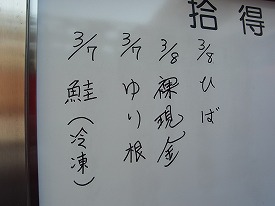 拾得
3/8 ひば
3/8 裸現金
3/7 ゆり根
3/7 鮭(冷凍)